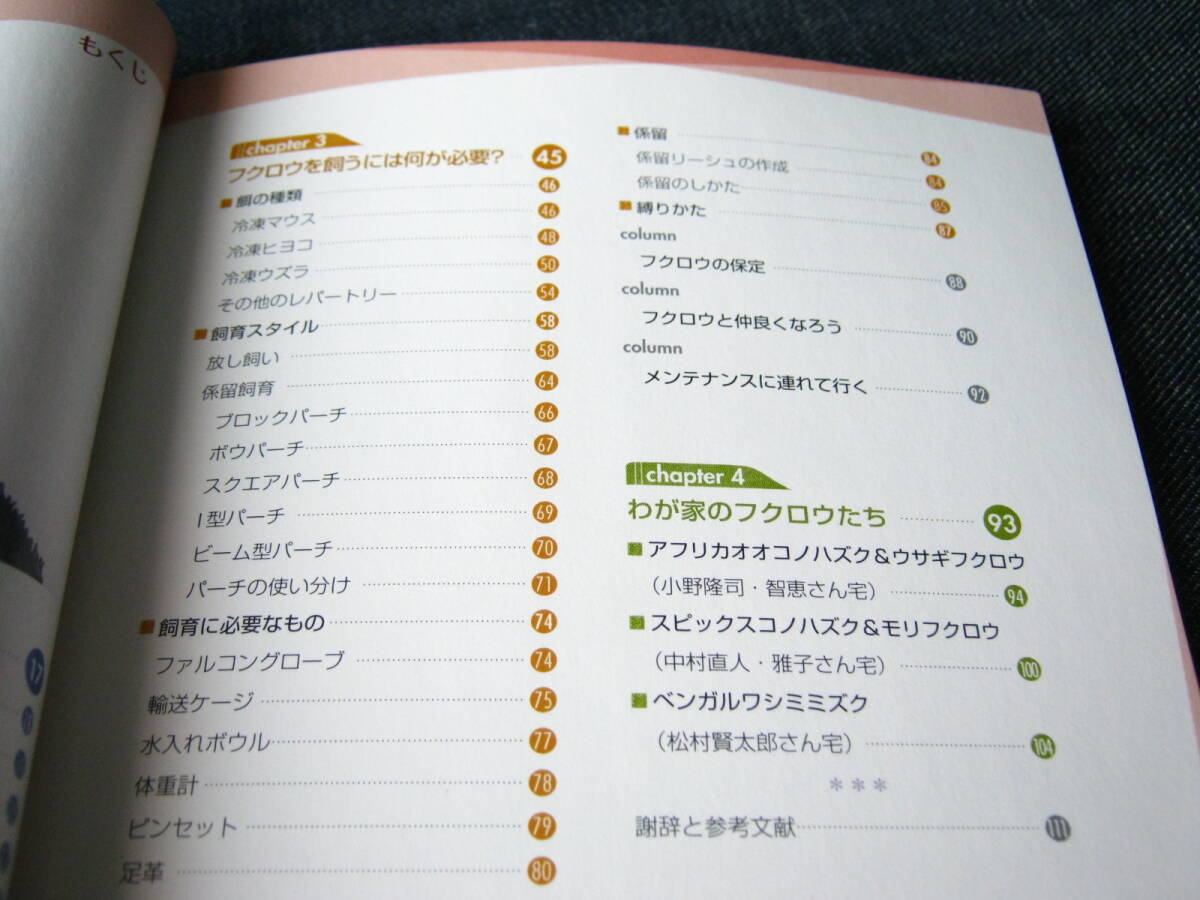 もくじ
17
chapter 3
フクロウを飼うには何が必要? 45
■餌の種類 46
冷凍マウス 46
冷凍ヒヨコ 48
冷凍ウズラ 50
その他のレパートリー 54
■飼育スタイル 58
放し飼い 58
係留飼育 64
ブロックパーチ 66
ボウパーチ 67
スクエアパーチ 68
I型パーチ 69
ビーム型パーチ 70
パーチの使い分け 71
■飼育に必要なもの 74
ファルコングローブ 74
輸送ケージ 75
水入れボウル 77
体重計 78
ピンセット 79
足革 80
■係留 84
係留リーシュの作成 84
係留のしかた 85
■縛りかた 87
column
フクロウの保定 88
column
フクロウと仲良くなろう 90
column
メンテナンスに連れて行く 92
chapter 4
わが家のフクロウたち 93
■アフリカオオコノハズク&ウサギフクロウ
(小野隆司・智恵さん宅) 94
■スピックスコノハズク&モリフクロウ
(中村直人・雅子さん宅) 100
■ベンガルワシミミズク
(松村賢太郎さん宅) 104
***
謝辞と参考文献 111